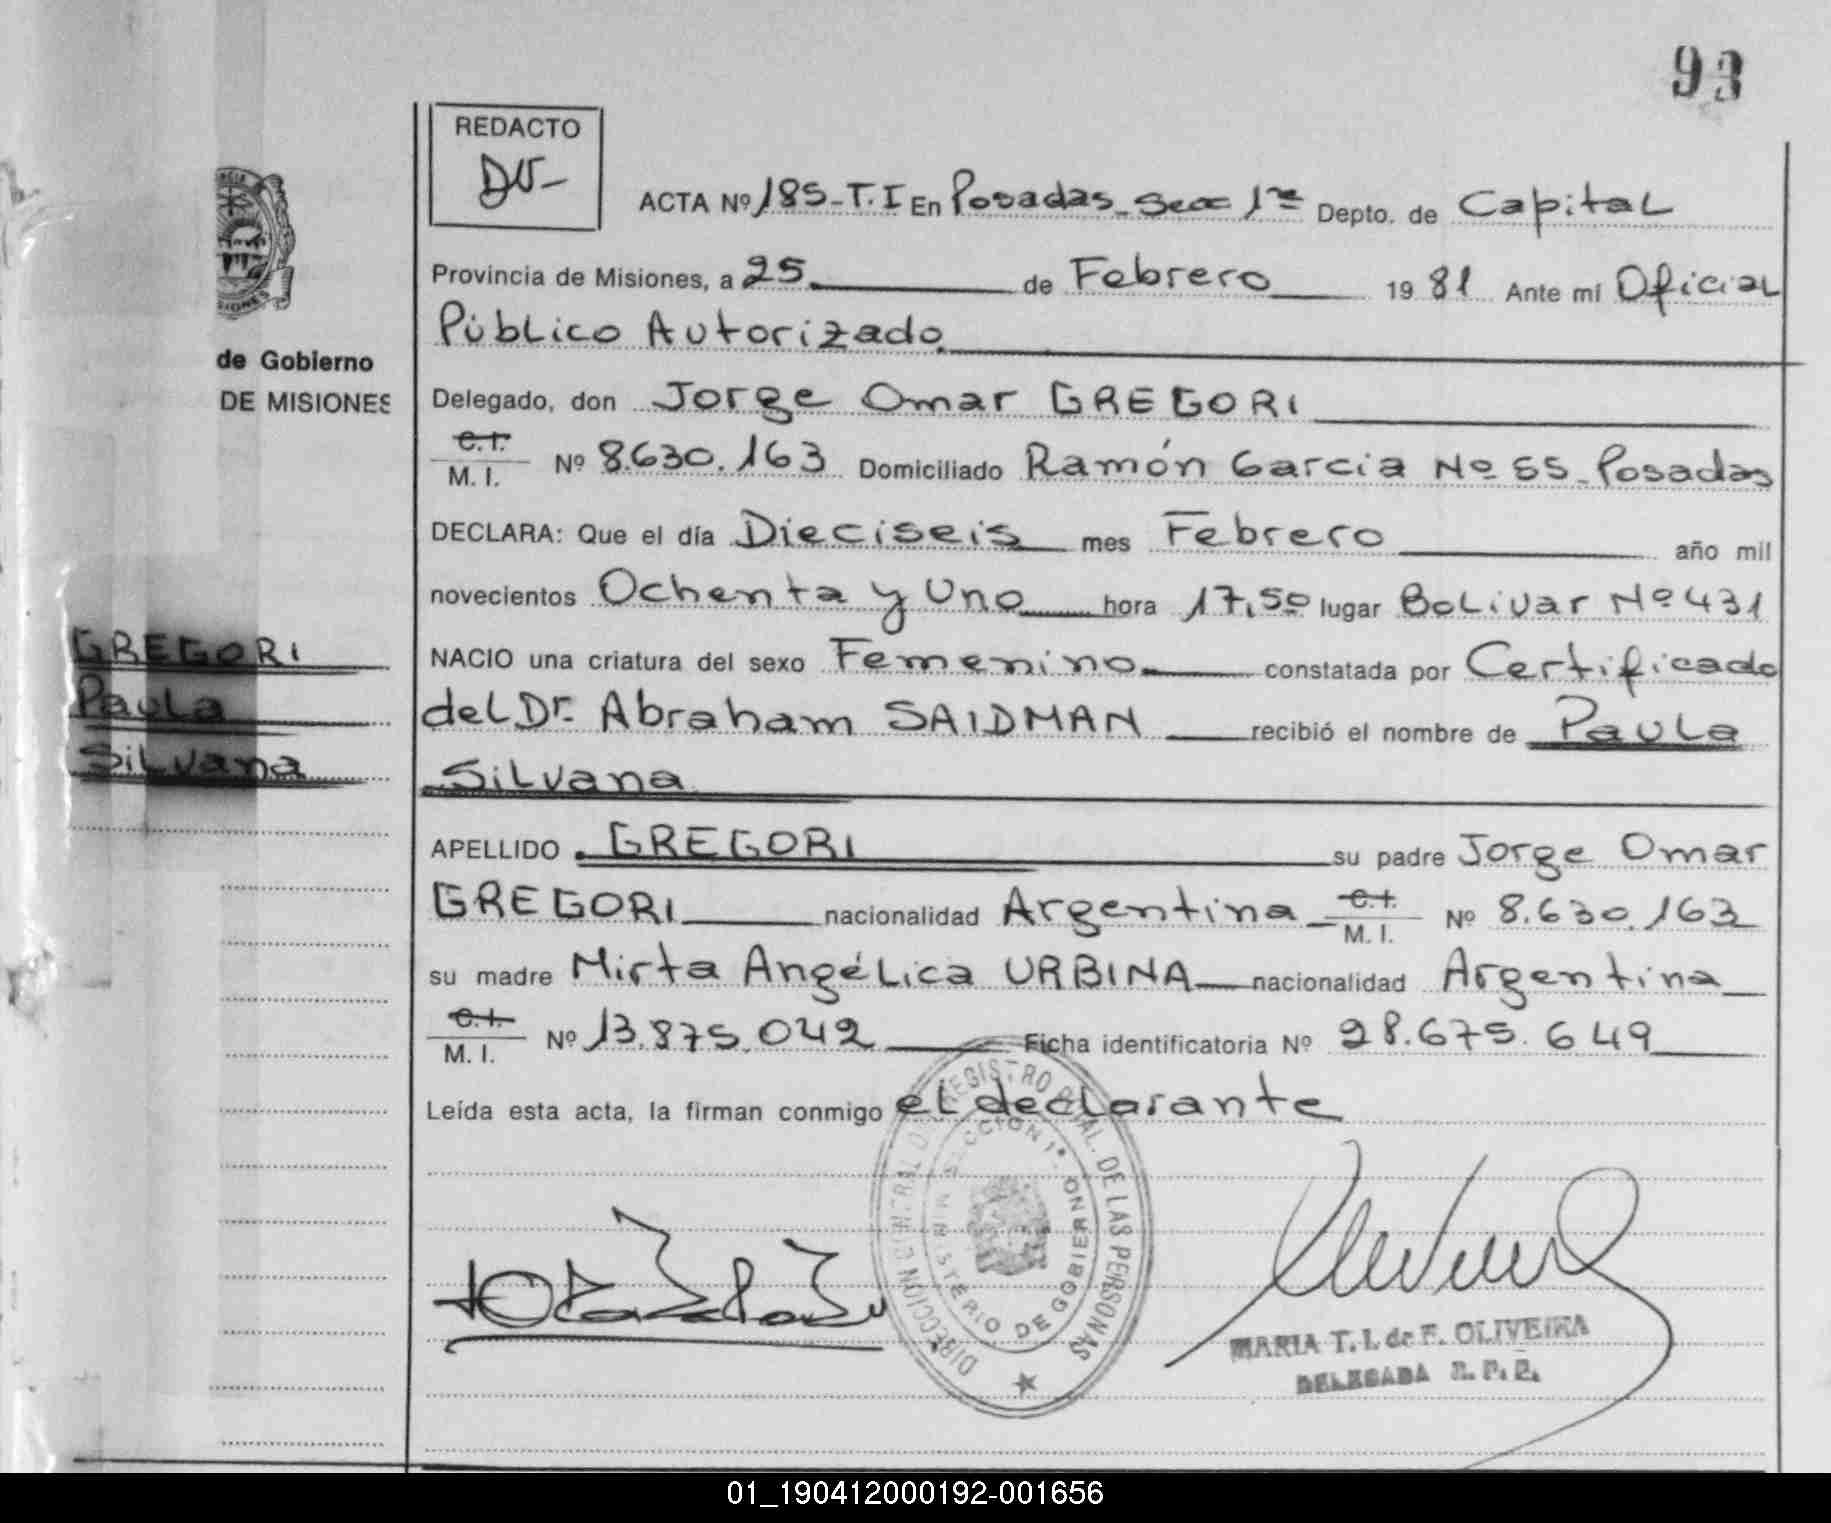 93
REDACTO
DV-
ACTA Nº 185-T.I En Posadas-Secc 1ra Depto. de Capital
Provincia de Misiones, a 25 de Febrero 19 81 Ante mí Oficial
Público Autorizado
de Gobierno
DE MISIONES
Delegado, don Jorge Omar GREGORI
C.I.
M. I. Nº 8.630.163 Domiciliado Ramón Garcia Nº 55-Posadas
DECLARA: Que el día Dieciseis mes Febrero año mil
novecientos Ochenta y Uno hora 17,50 lugar Bolivar Nº 431
GREGORI
Paula
Silvana
NACIO una criatura del sexo Femenino constatada por Certificado
del Dr. Abraham SAIDMAN recibió el nombre de Paula
Silvana
APELLIDO GREGORI su padre Jorge Omar
GREGORI nacionalidad Argentina C.I. M. I. Nº 8.630.163
su madre Mirta Angélica URBINA nacionalidad Argentina
C.I.
M. I. Nº 13.875.042 Ficha identificatoria Nº 28.675.649
Leída esta acta, la firman conmigo el declarante
DIRECCION GENERAL DEL REGISTRO PCIAL. DE LAS PERSONAS
SECCION 1ª.
MINISTERIO DE GOBIERNO
MARIA T. I. de F. OLIVEIRA
DELEGADA R. P. P.
01_190412000192-001656